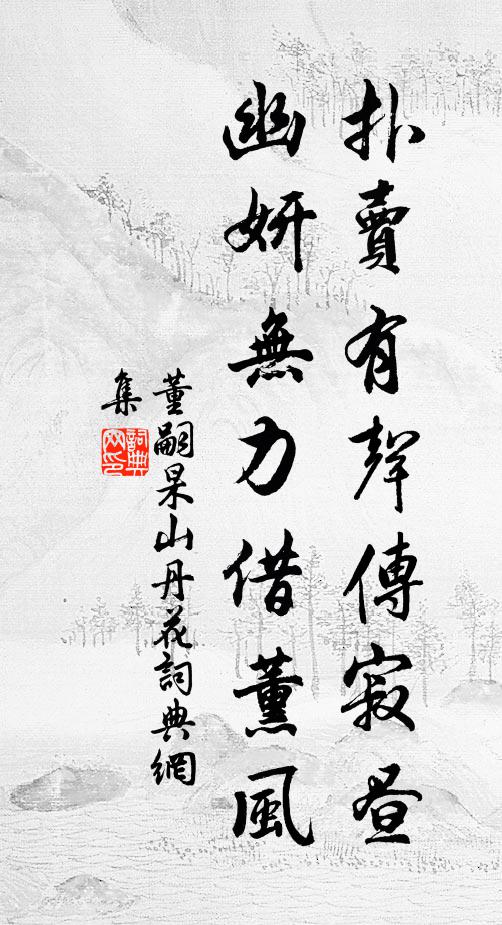 扑賣有聲傳寂昼
幽妍無力借薰風
董嗣杲山丹花詞典網
集
詞典
网印